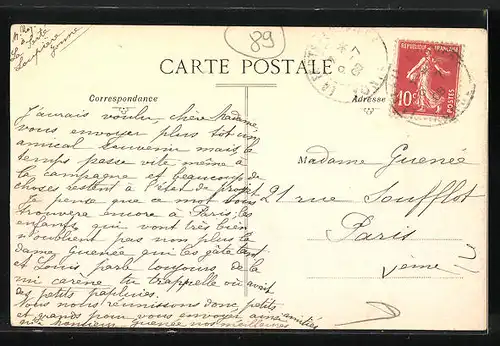 89
CARTE POSTALE
Correspondance
Adresse
RÉPUBLIQUE FRANÇAISE
10c
POSTES
J'aurais voulu, chère Madame,
vous envoyer plus tôt un
amical souvenir mais le
temps passe vite même à
la campagne et beaucoup de
choses restent à l'état de projet
Je pense que ce mot vous
trouvera encore à Paris; les
enfants qui vont très bien
n'oublient pas non plus la
dame Guenée qui les gâte tant
et Louis parle toujours de la
mi carême, tu t'rappelle où avait
des petits papluies.
Nous nous réunissons donc petits
et grands pour vous envoyer ainsi
Guenée nos meilleures
amitiés
Madame Guenée
21 rue Soufflot
Paris
Vème